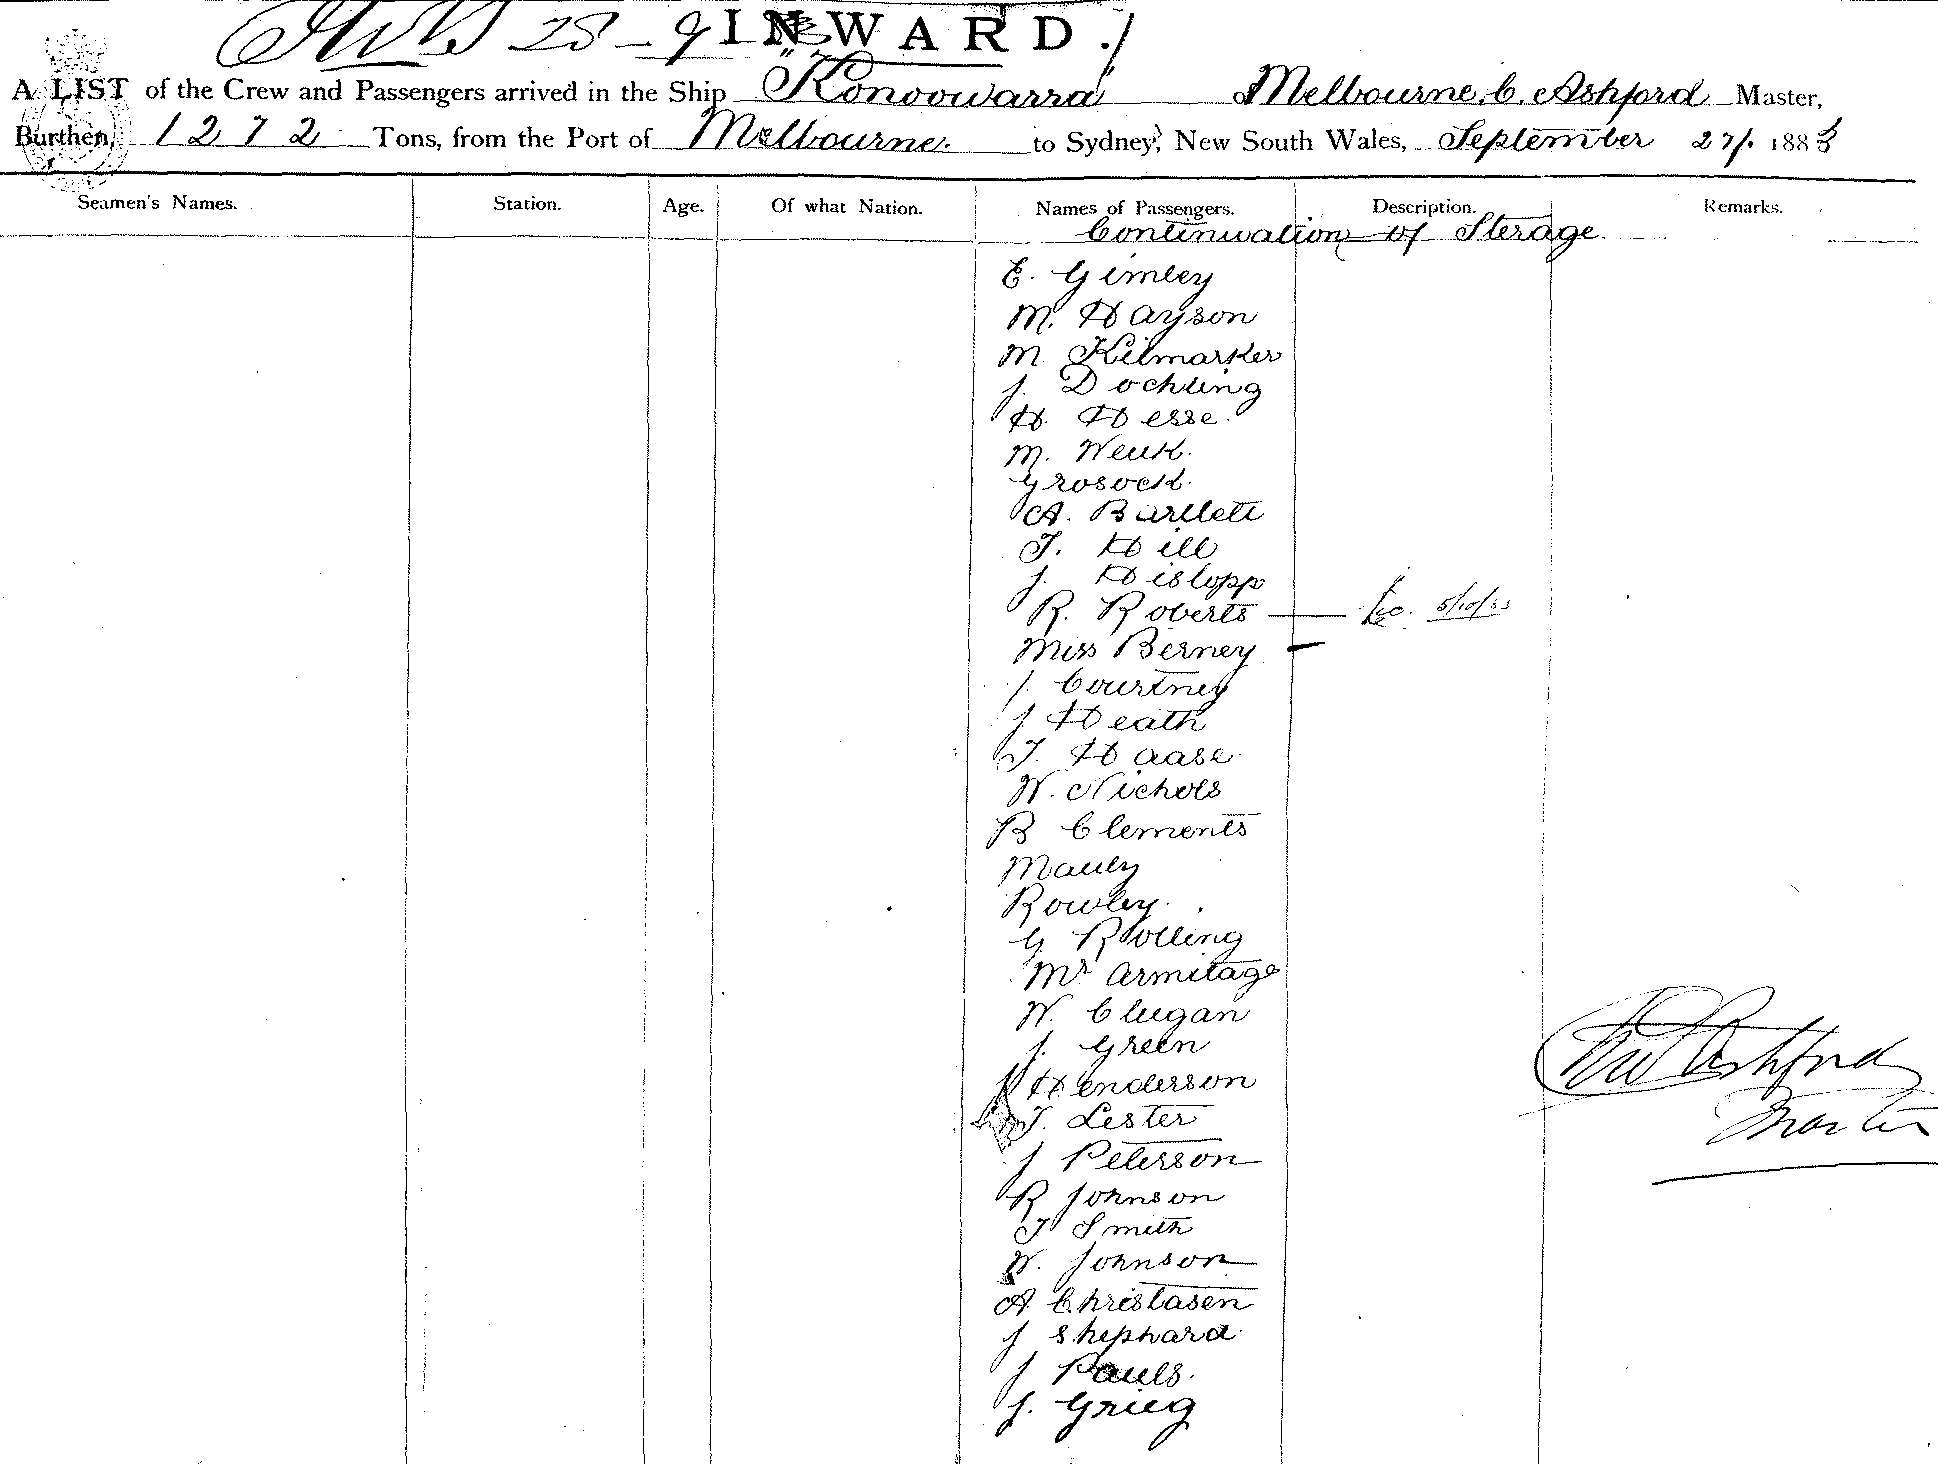 28-9 INWARD.
A LIST of the Crew and Passengers arrived in the Ship "Konoowarra" of Melbourne, C. Ashford Master,
Burthen, 1272 Tons, from the Port of Melbourne. to Sydney, New South Wales, September 27/. 1883
Seamen's Names. Station. Age. Of what Nation. Names of Passengers. Description. Remarks.
Continuation of Sterage
E. Gimley
M. Hayson
M Kilmarker
J. Dochling
H. Hesse.
M.
Grosock.
A. Bartlett
T. Hill
J. Hislopp
R. Roberts
Miss Berney
J. Courtney
J Heath
T. Haase
W. Nichols
B Clements
Mauly
Rowley.
G Rolling
Mr Armitage
W. Clugan
J. Green
Henderson
T. Lester
J Peterson
R Johnson
T Smith
W. Johnson
A Christasen
J Shephard
J Pauls.
J. Grieg
Ashford
Master